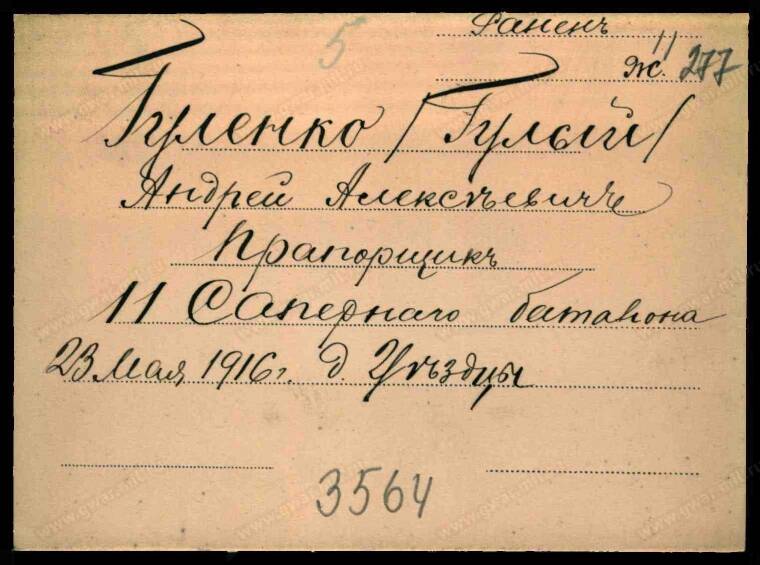 5
Раненъ
Ж. 11 277
Гуленко /Гулый/
Андрей Алексѣевичъ
Прапорщикъ
11 Сапернаго баталiона
23 Мая 1916 г. д.
3564
www.gwar.mil.ru